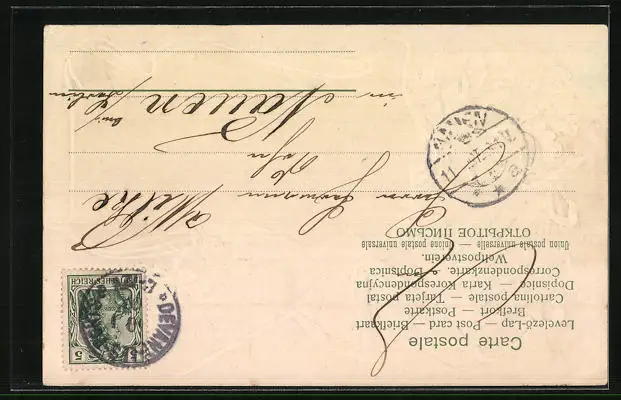 Carte postale
Levelező-Lap — Post card — Briefkaart
Brefkort — Postkarte
Cartolina postale — Tarjeta postal
Dopisnice — Karta Korespondencyjna
Correspondenzkarte. — Dopisnica
Weltpostverein.
Union postale universelle — Unione postale universale
ОТКРЫТОЕ ПИСЬМО
Herrn
in Nauen
bei Berlin
NAUEN
DEUTSCHES REICH
5